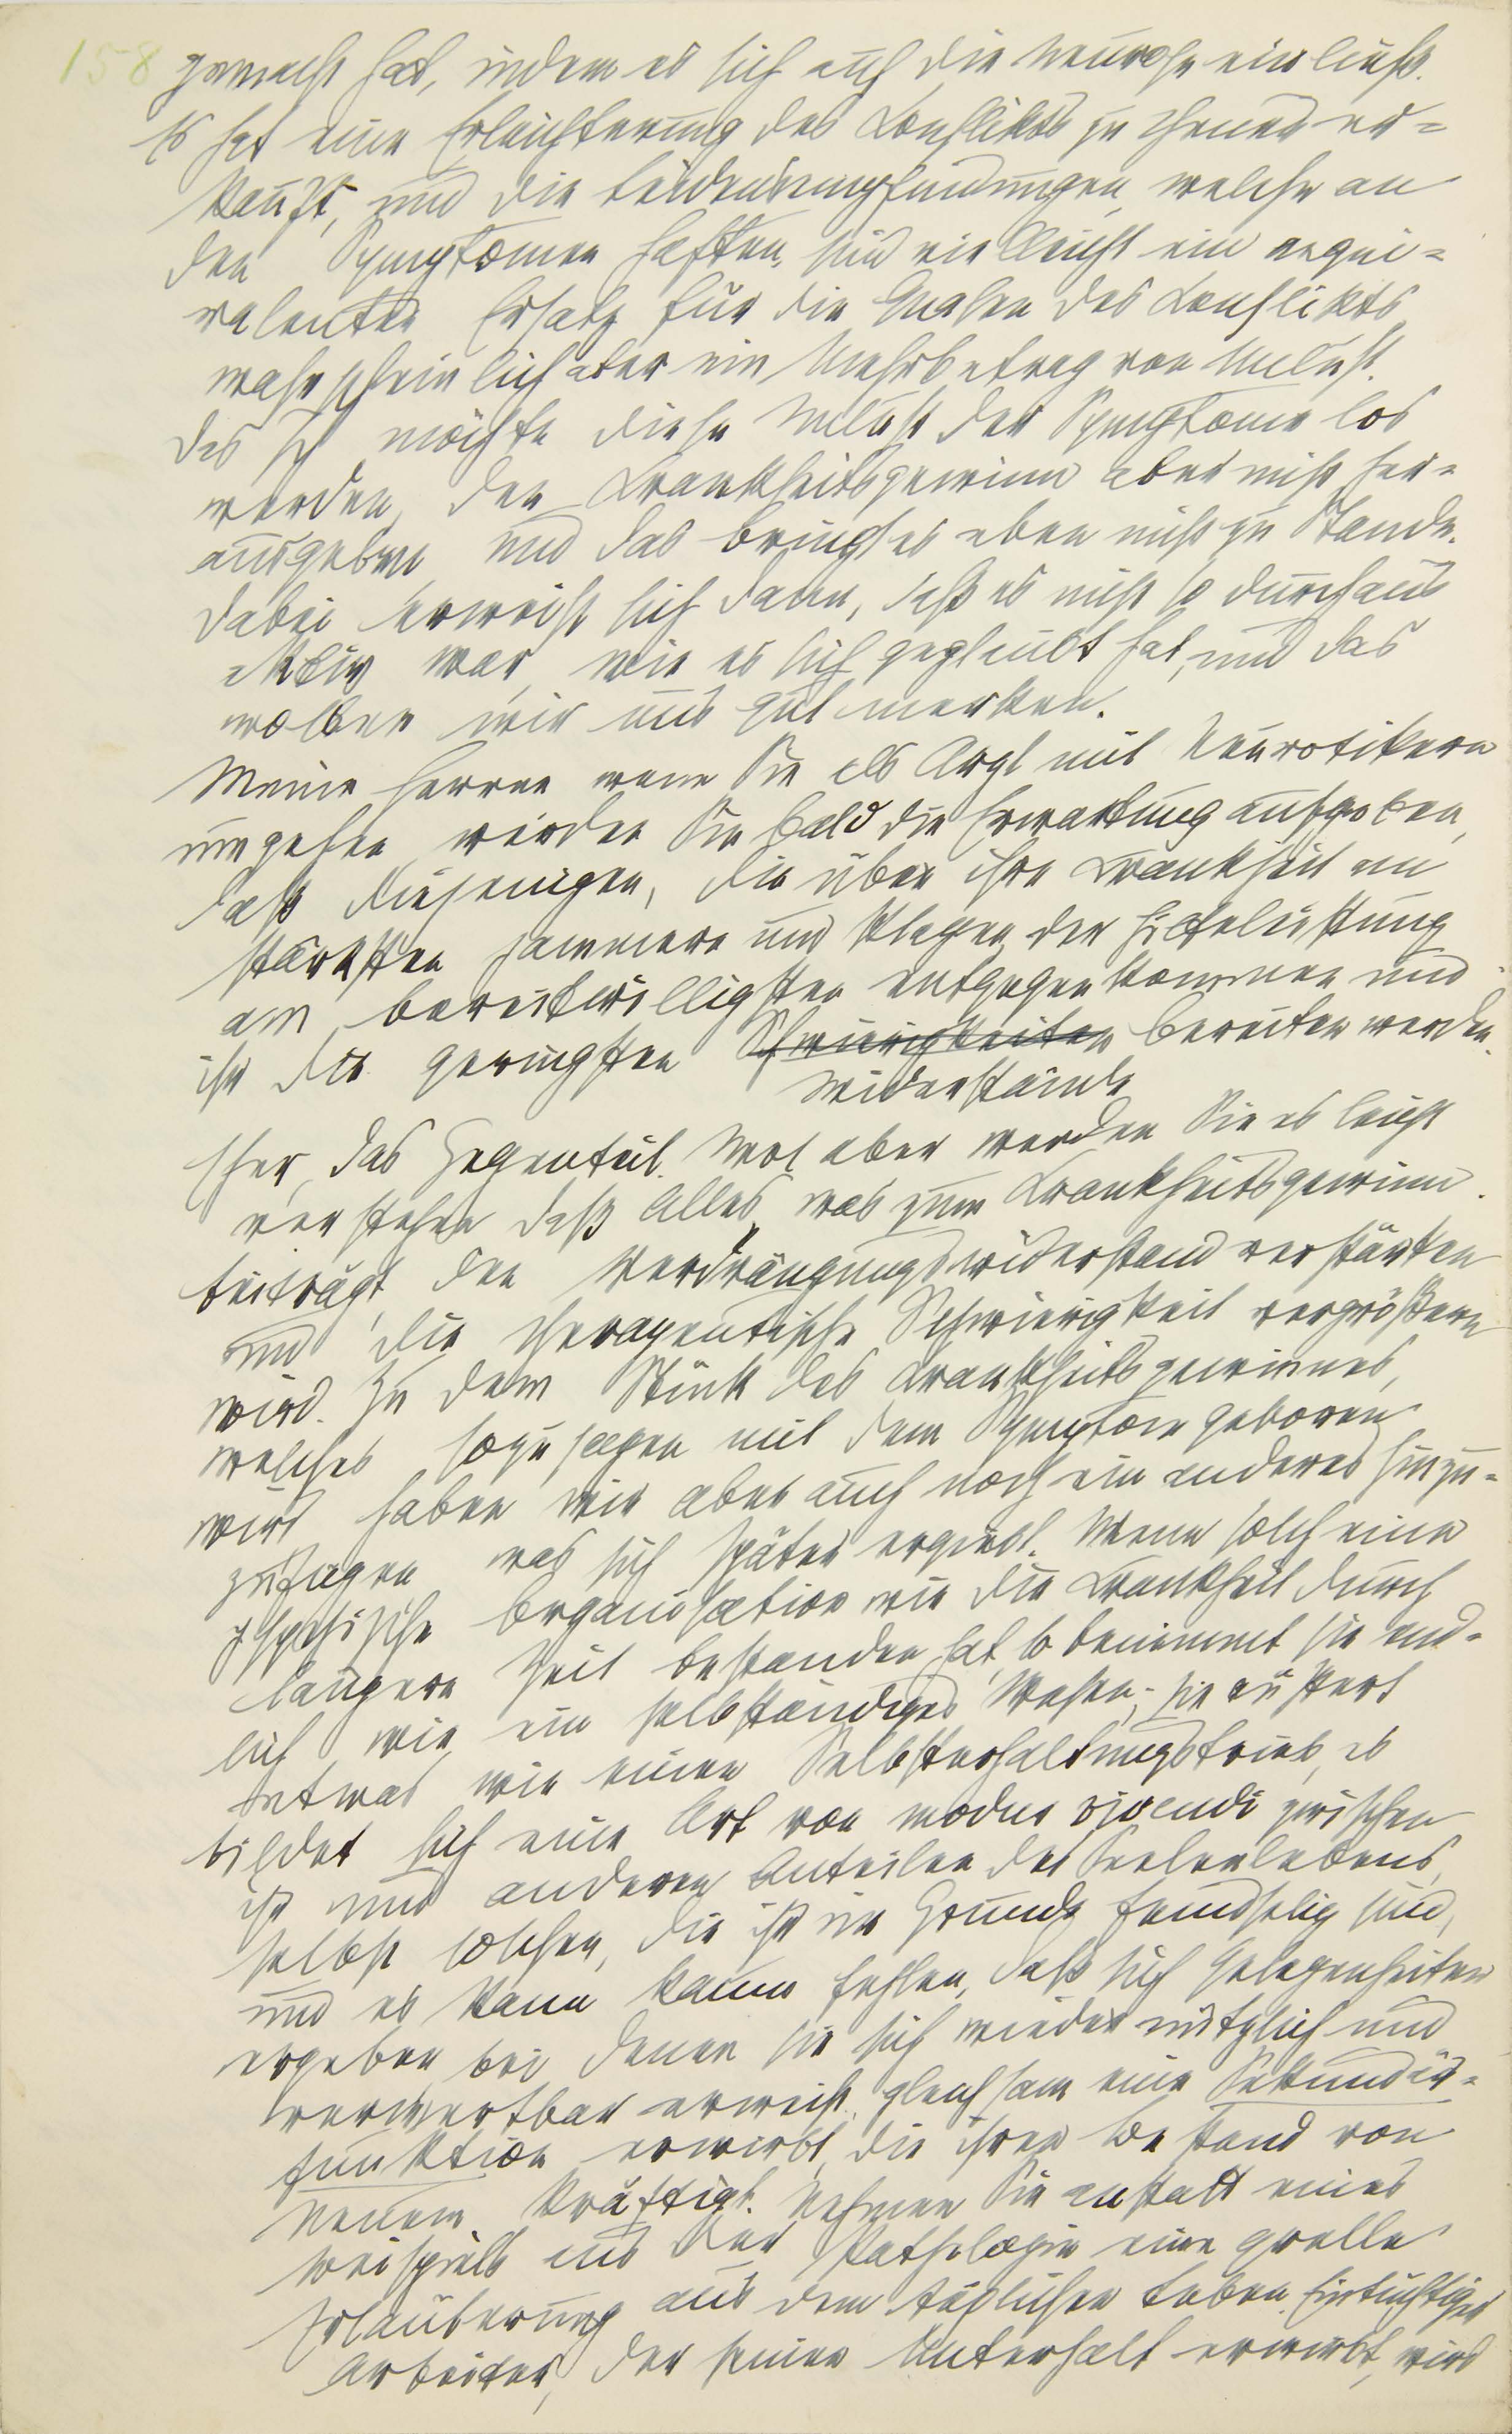 158
gemacht hat, indem es sich auf die Neurose einließ.
Es hat eine Erleichterung des Konflikts zu theuer er=
kauft, und die Leidensempfindungen, welche an
den Symptomen haften, sind vielleicht ein aequi=
valenter Ersatz für die Qualen des Konflikts,
wahrscheinlich aber ein Mehrbetrag von Unlust.
Das Ich möchte diese Unlust der Symptome los
werden, den Krankheitsgewinn aber nicht her=
ausgeben, und das bringt es eben nicht zu Stande.
Dabei erweist sich dann, daß es nicht so durchaus
aktiv war, wie es sich geglaubt hat, und das
wollen wir uns gut merken.
Meine Herren wenn Sie als Arzt mit Neurotikern
umgehen, werden Sie bald die Erwartung aufgeben,
daß diejenigen, die über ihre Krankheit am
stärksten jammern und klagen, der Hilfeleistung
am bereitwilligsten entgegenkommen und
ihr die geringsten Schwierigkeiten bereiten werden.
Widerstände
Eher, das Gegenteil. Wol aber werden Sie es leicht
verstehen daß Alles, was zum Krankheitsgewinn
beiträgt, den Verdrängungswiderstand verstärken
und die therapeutische Schwierigkeit vergrößern
wird. Zu dem Stück des Krankheitsgewinnes,
welches sozusagen mit dem Symptom geboren
wird haben wir aber auch noch ein anderes hinzu=
zufügen was sich später ergiebt. Wenn solch eine
psychische Organisation wie die Krankheit durch
längere Zeit bestanden hat, so benimmt sie end=
lich wie ein selbständiges Wesen; sie äußert
etwas wie einen Selbsterhaltungstrieb, es
bildet sich eine Art von modus vivendi zwischen
ihr und anderen Anteilen des Seelenlebens,
selbst solchen, die ihr im Grunde feindselig sind,
und es kann kaum fehlen, daß sich Gelegenheiten
ergeben bei denen sie sich wieder nützlich und
verwertbar erweist, gleichsam eine Sekundär=
funktion erwirbt, die ihren Bestand von
Neuem kräftigt. Nehmen Sie anstatt eines
Beispiels aus der Pathologie eine grelle
Erläuterung aus dem täglichen Leben. Ein tüchtiger
Arbeiter, der seinen Unterhalt erwirbt, wird